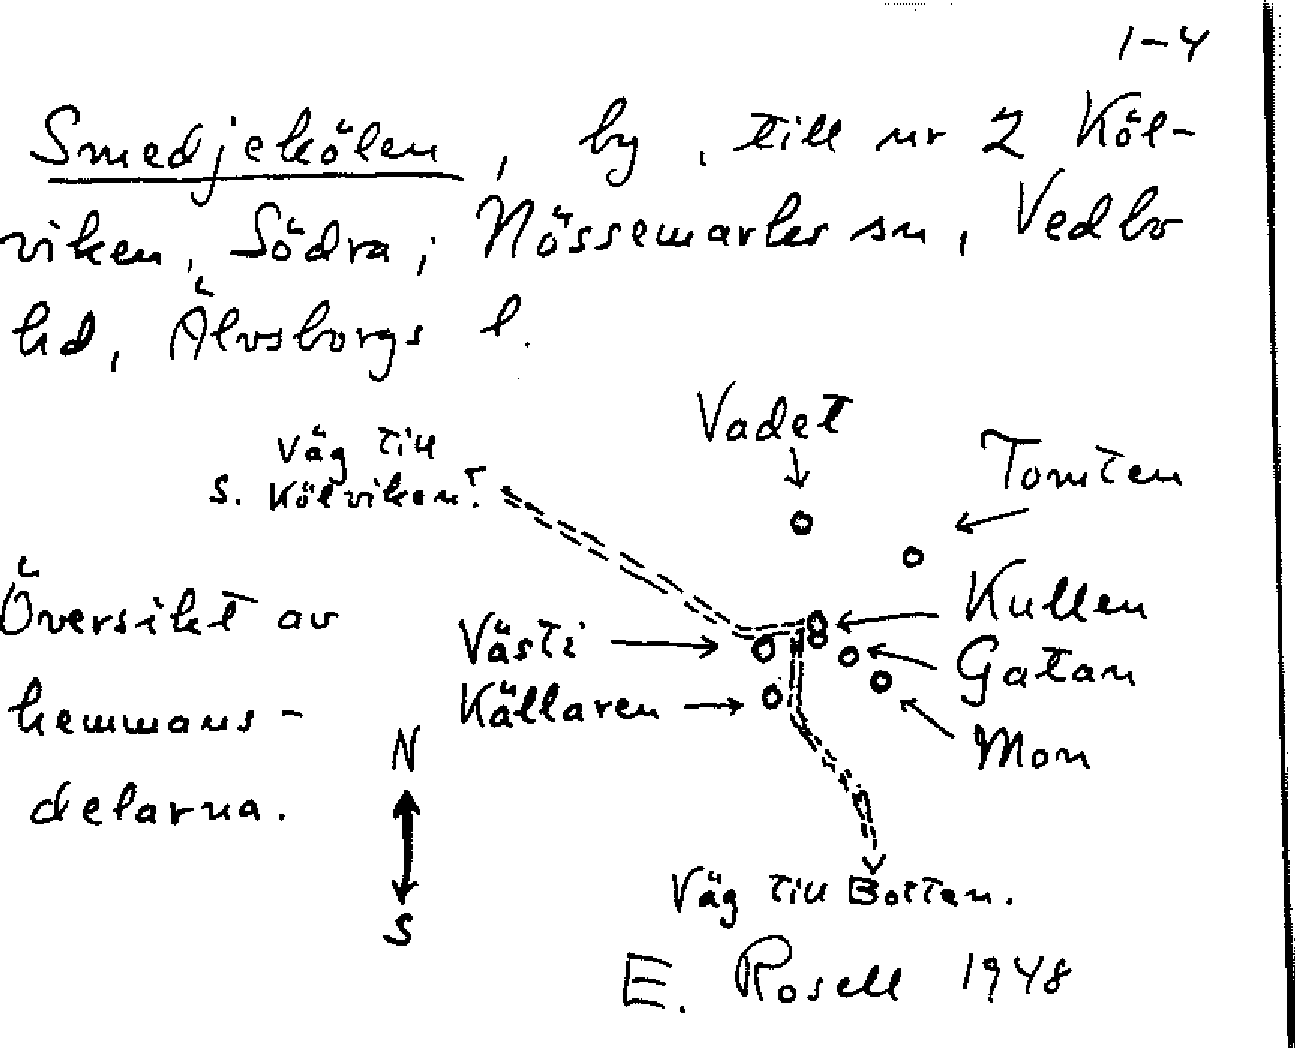 1-4
Smedjekölen, by, till nr 2 Köl-
viken, Södra; Nössemarks sn, Vedbo
hd, Älvsborgs l.
Vadet
Väg till
S. Kölviken.
Tomten
Översikt av
Kullen
Västi
Gatan
Källaren
hemmans-
Mon
N
delarna.
Väg till Bottan.
S
E. Rosell 1948